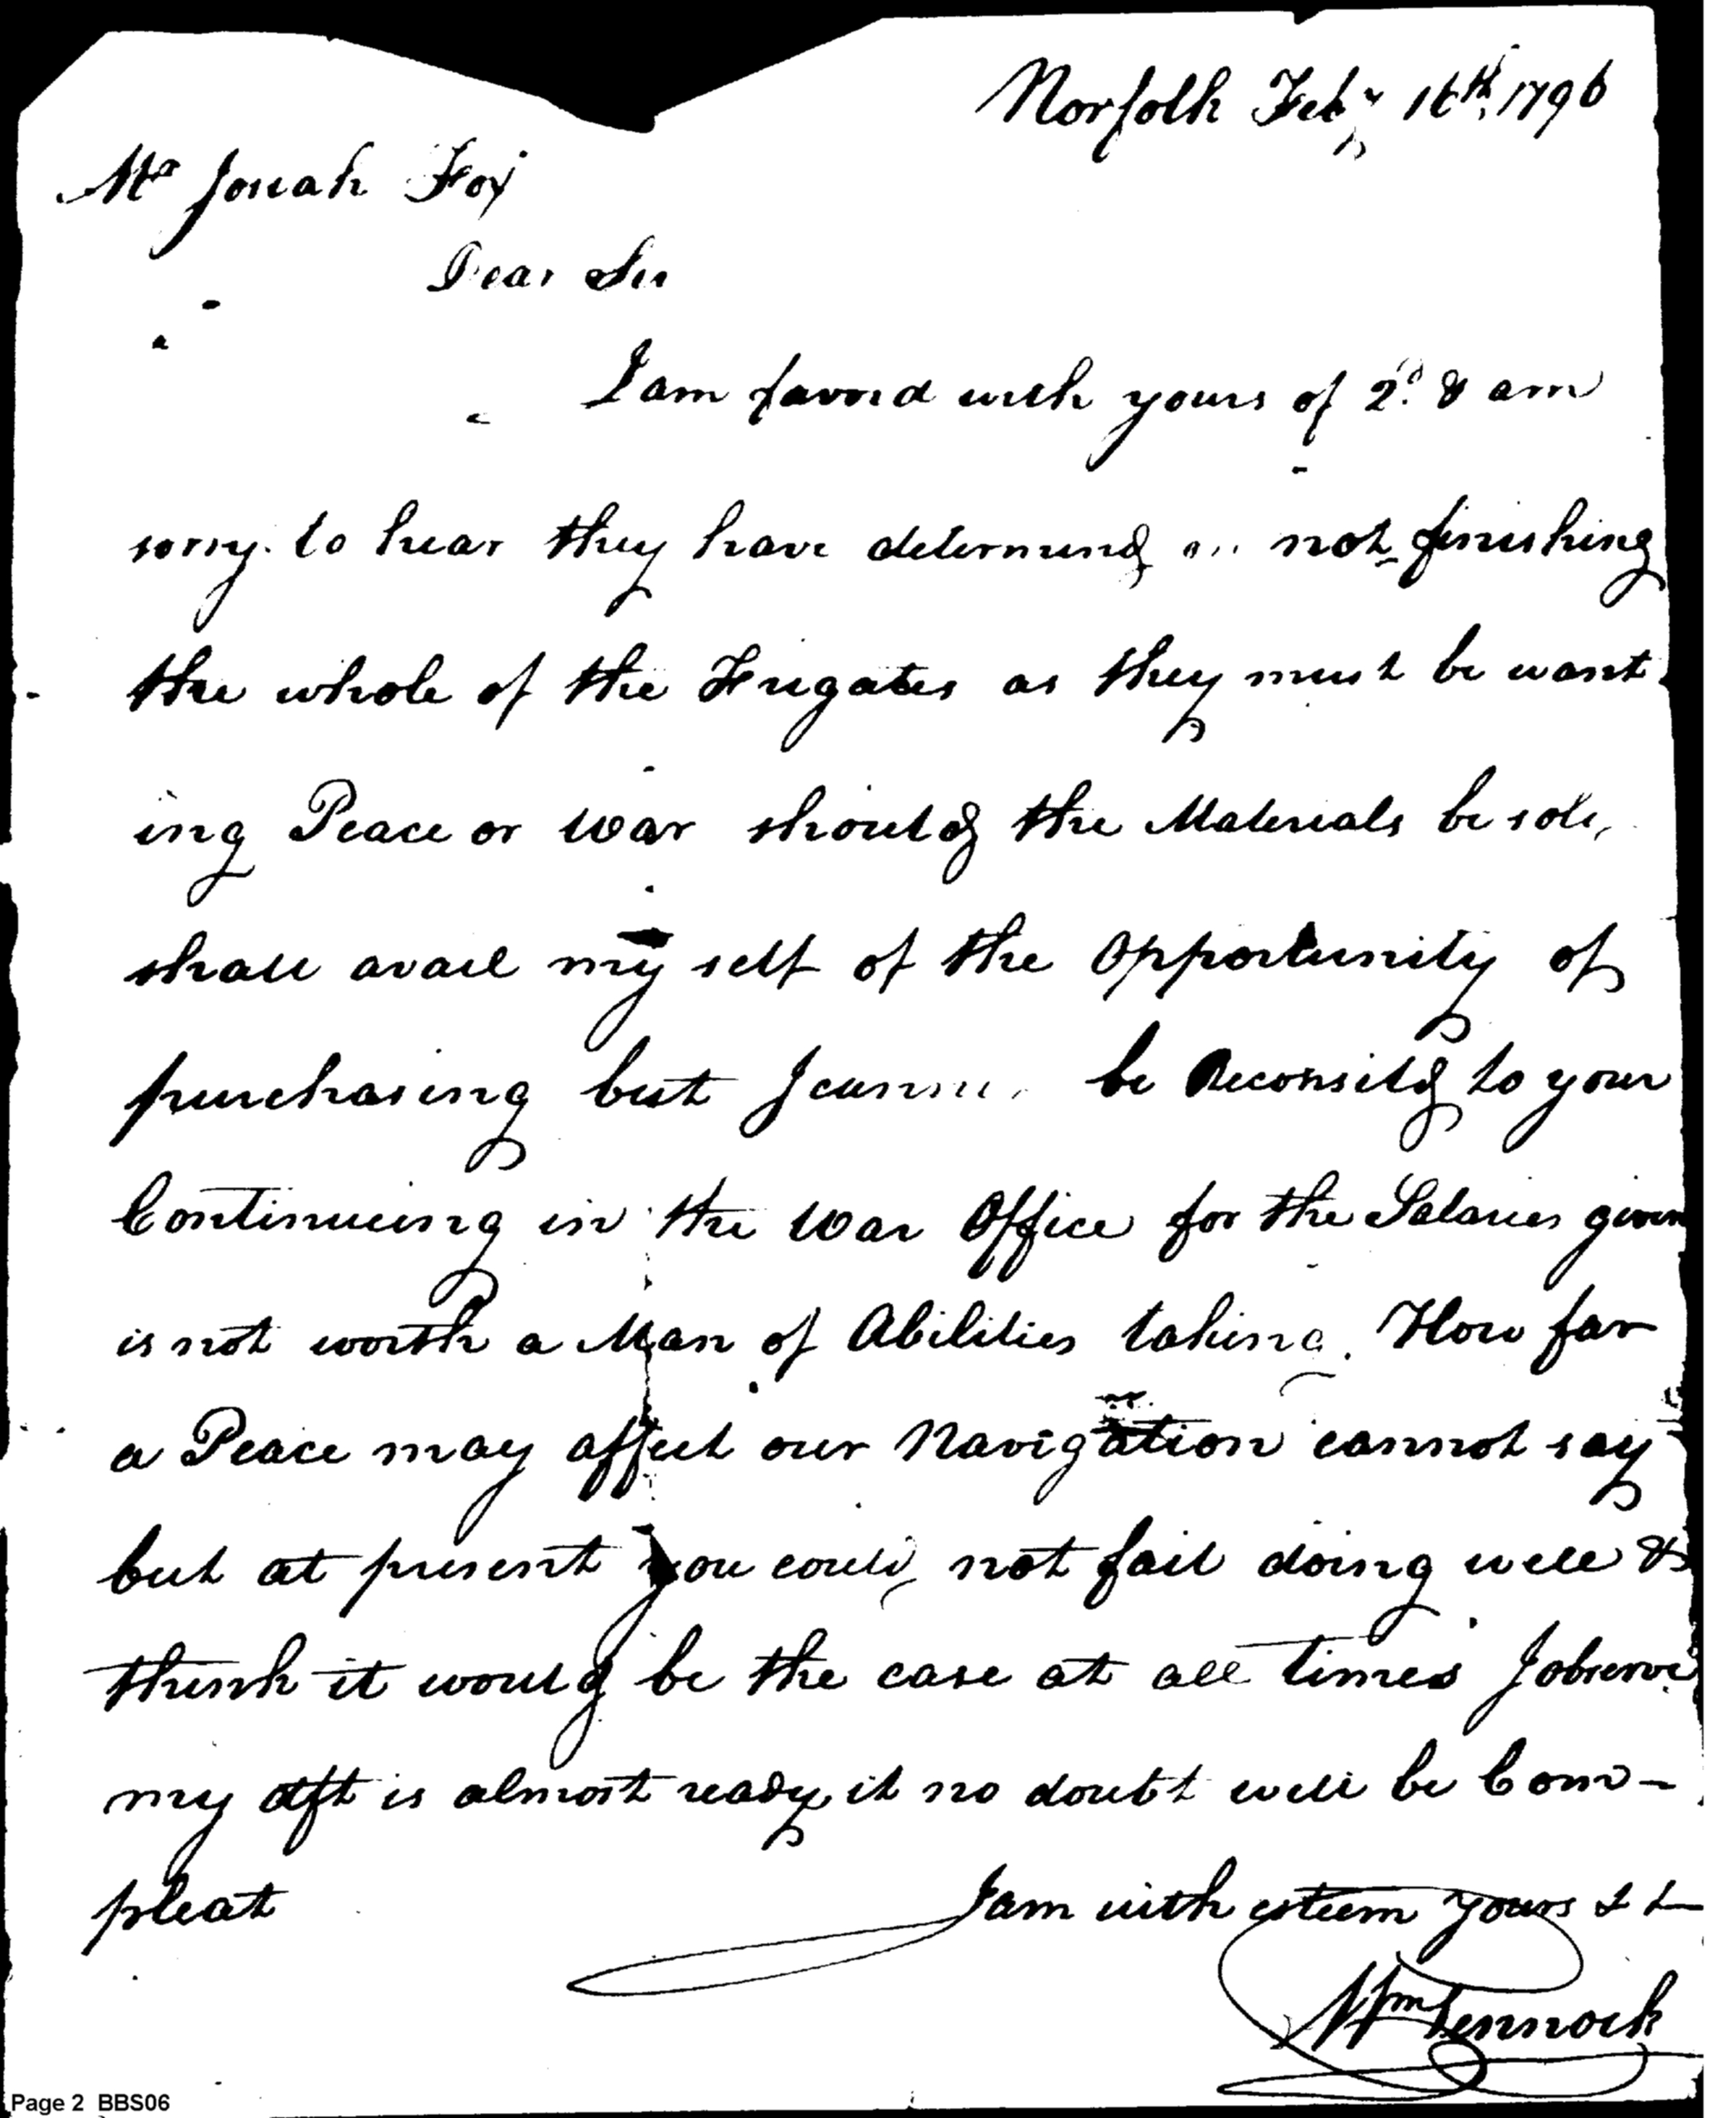 Norfolk Feby 16th. 1796
Mr Josiah Fox
Dear Sir
I am favord with yours of 2d. & am
sorry to hear they have determind on not finishing
the whole of the Frigates as they must be want
ing Peace or War should the Materials be sold
shall avail my self of the Opportunity of
purchasing but I cannot be Reconsild to your
Continueing in the War Office for the Salaries given
is not worth a Man of Abilities taking. How far
a Peace may affect our Navigation cannot say
but at present you could not fail doing well &
think it would be the case at all times I observe
my dft is almost ready it no doubt will be Com-
pleat
I am with esteem yours
Wm Pennock
Page 2 BBS06